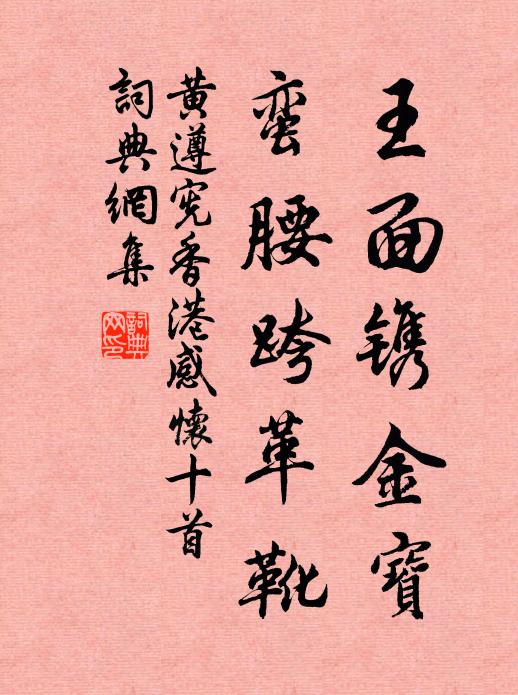 王面镌金寶
蛮腰跨革靴
黃遵宪香港感懷十首
詞典網集
詞典網印